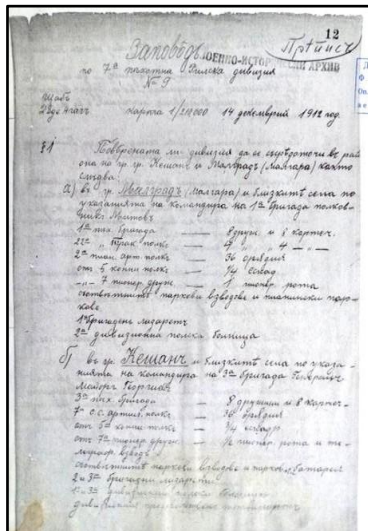 12
Прѣписъ
Заповѣдь
ВОЕННО-ИСТОР АРХИВ
по 7а пехотна Рилска дивизия
№ 9
щабъ
карта 1/210000 14 декемврий 1912 год.
§1
Повѣрената ми дивизия да се съсрѣдоточи въ рай
она на гр. гр. Кешанъ и Малградъ (Малгара) както
следва:
а) въ гр. Малградъ (Малгара) и близкитѣ села по
указанията на командира на 1а бригада полков-
никъ
1а пех. бригада — 8 друж. и 8 картеч.
22 полкъ — 4 " 4 —
2а план. арт. полкъ — 36 орѫдия
от 5 конни полкъ — 3/4 ескад.
7 пионер. друж. — 1 пионер. рота
съответнитѣ паркови взводове и планински пар-
кове
1 бригаденъ лазаретъ
2а дивизионна полска болница
б) въ гр. Кешанъ и близкитѣ села по указа-
нията на командира на 3а бригада Генералъ
Майоръ Георгиевъ
3а пех. бригада — 8 дружини и 8 картеч.
7 с. с. артил. полкъ — 36 орѫдия
отъ 5 конни полкъ — 3/4 ескадр.
отъ 7 пионер. друж. — 1/2 пионер. рота и те-
леграф. взводъ
съответнитѣ паркови взводове и паркова батарея
2 и 3а бригадни лазарети